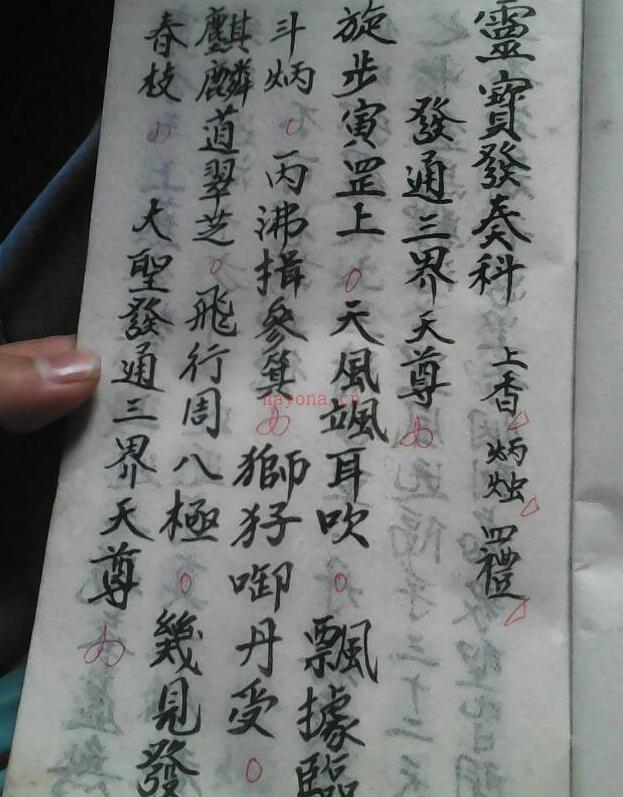 靈寶發奏科 上香 炳烛 四禮
發通三界天尊
旋步寅罡上 天風颯耳吹 飄據臨
斗炳 丙沸揖參箕 獅犼啣丹受
麒麟蒀翠芝 飛行周八極 幾見發
春枝 大聖發通三界天尊
nayona.cn